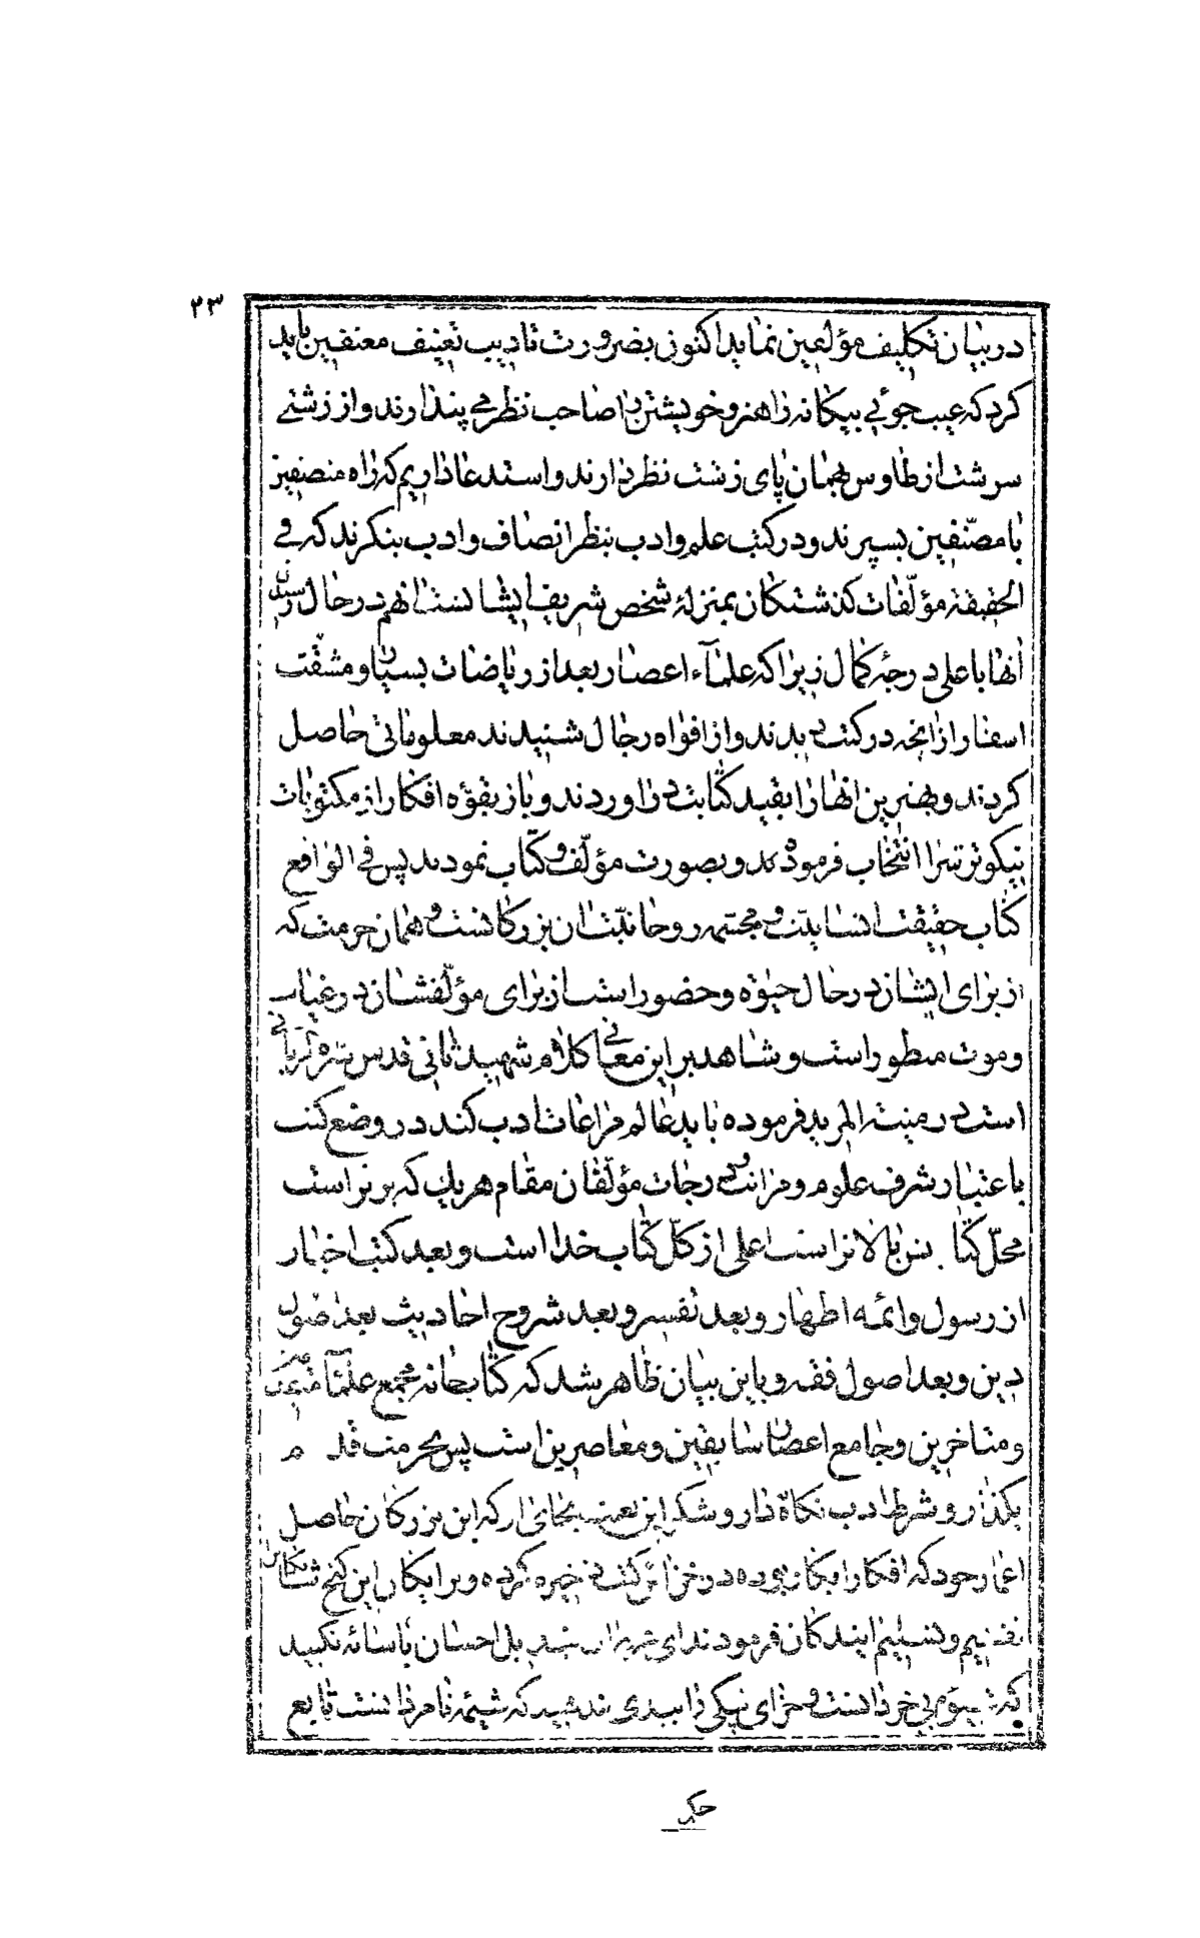 ۲۳
در بیان تکلیف مؤلفین نماید اکنون بضرورت تادیب تعنیف معنفین باید
کرد که عیب جوئی بیکانه را هنر و خویشتن را صاحب نظر می پندارند و از زشتی
سرشت از طاوس بهمان پای زشت نظر دارند و استدعا داریم که راه منصفین
با مصنّفین بسپرند و در کتب علم و ادب بنظر انصاف و ادب بنکرند که فی
الحقیقة مؤلّفات کذشتکان بمنزلهٔ شخص شریف ایشانست انهم در حال رسیدن
انها باعلی درجهٔ کمال زیرا که علمآء اعصار بعد از ریاضات بسیار و مشقّت
اسفار از انچه در کتب دیدند و از افواه رجال شنیدند معلوماتی حاصل
کردند و بهترین انها را بقید کتابت در اوردند و باز بقوّه افکار از مکتوبات
نیکوترش را انتخاب فرموده اند و بصورت مؤلّف و کتاب نمودند پس فی الواقع
کتاب حقیقت انسانیّت و مجسّمه روحانیّت ان بزرکانست و همان حرمت که
از برای ایشان در حال حیوة و حضور است از برای مؤلّفشان در غیاب
و موت منظور است و شاهد بر این معنی کلام شهید ثانی قدس سره
است که در منیة المرید فرموده باید عالم مراعات ادب کند در وضع کتب
باعتبار شرف علوم و مراتب درجات مؤلّفان مقام هر یک که برتر است
محلّ کتابش بالاتر است اعلی از کلّ کتاب خدا است و بعد کتب اخبار
از رسول و ائمه اطهار و بعد تفسیر و بعد شروح احادیث بعد اصول
دین و بعد اصول فقه و باین بیان ظاهر شد که کتابخانه مجمع علمآ متقدّمین
و متاخرین و جامع اعصار سابقین و معاصرین است پس بحرمت قدم
بکذار و شرط ادب نکاه دار و شکر این نعمت بجای ار که این بزرکان حاصل
اعمار خود که افکار ابکار بوده در خزائن کتب ذخیره کرده و برایکان این کنج
و تسلیم ایندکان فرمودند ای بدل احسان با سائه نکنید
که شیوه بی خردانست و جزای نیکی را ببدی ندهید که شیمهٔ نامردانست تابع
حکم